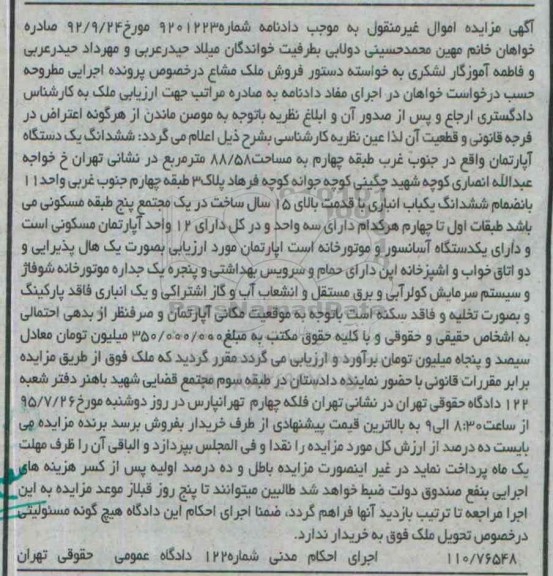 آگهی مزایده اموال غیرمنقول به موجب دادنامه شماره۹۲۰۱۲۲۳ مورخ۹۲/۹/۲۴ صادره
خواهان خانم مهین محمدحسینی دولابی بطرفیت خواندگان میلاد حیدرعربی و مهرداد حیدرعربی
و فاطمه آموزگار لشکری به خواسته دستور فروش ملک مشاع درخصوص پرونده اجرایی مطروحه
حسب درخواست خواهان در اجرای مفاد دادنامه به صادره مراتب جهت ارزیابی ملک به کارشناس
دادگستری ارجاع و پس از صدور آن و ابلاغ نظریه باتوجه به موصن ماندن از هرگونه اعتراض در
فرجه قانونی و قطعیت آن لذا عین نظریه کارشناسی بشرح ذیل اعلام می گردد: ششدانگ یک دستگاه
آپارتمان واقع در جنوب غرب طبقه چهارم به مساحت۸۸/۵۸ مترمربع در نشانی تهران خ خواجه
عبدالله انصاری کوچه شهید چگینی کوچه جوانه کوچه فرهاد پلاک۳ طبقه چهارم جنوب غربی واحد۱۱
بانضمام ششدانگ یکباب انباری با قدمت بالای ۱۵ سال ساخت در یک مجتمع پنج طبقه مسکونی می
باشد طبقات اول تا چهارم هرکدام دارای سه واحد و در کل دارای ۱۲ واحد آپارتمان مسکونی است
و دارای یکدستگاه آسانسور و موتورخانه است اپارتمان مورد ارزیابی بصورت یک هال پذیرایی و
دو اتاق خواب و اشپزخانه اپن دارای حمام و سرویس بهداشتی و پنجره یک جداره موتورخانه شوفاژ
و سیستم سرمایش کولرآبی و برق مستقل و انشعاب آب و گاز اشتراکی و یک انباری فاقد پارکینگ
و بصورت تخلیه و فاقد سکنه است باتوجه به موقعیت مکانی آپارتمان و صرفنظر از بدهی احتمالی
به اشخاص حقیقی و حقوقی و با کلیه حقوق مکتب به مبلغ۳۵۰/۰۰۰/۰۰۰ میلیون تومان معادل
سیصد و پنجاه میلیون تومان برآورد و ارزیابی می گردد مقرر گردید که ملک فوق از طریق مزایده
برابر مقررات قانونی با حضور نماینده دادستان در طبقه سوم مجتمع قضایی شهید باهنر دفتر شعبه
۱۲۲ دادگاه حقوقی تهران در نشانی تهران فلکه چهارم تهرانپارس در روز دوشنبه مورخ۹۵/۷/۲۶
از ساعت۸:۳۰ الی۹ به بالاترین قیمت پیشنهادی از طرف خریدار بفروش برسد برنده مزایده می
بایست ده درصد از ارزش کل مورد مزایده را نقدا و فی المجلس بپردازد و الباقی آن را ظرف مهلت
یک ماه پرداخت نماید در غیر اینصورت مزایده باطل و ده درصد اولیه پس از کسر هزینه های
اجرایی بنفع صندوق دولت ضبط خواهد شد طالبین میتوانند تا پنج روز قبلاز موعد مزایده به این
اجرا مراجعه تا ترتیب بازدید آنها فراهم گردد، ضمنا اجرای احکام این دادگاه هیچ گونه مسئولیتی
درخصوص تحویل ملک فوق به خریدار ندارد.
۱۱۰/۷۶۵۴۸ اجرای احکام مدنی شماره۱۲۲ دادگاه عمومی حقوقی تهران